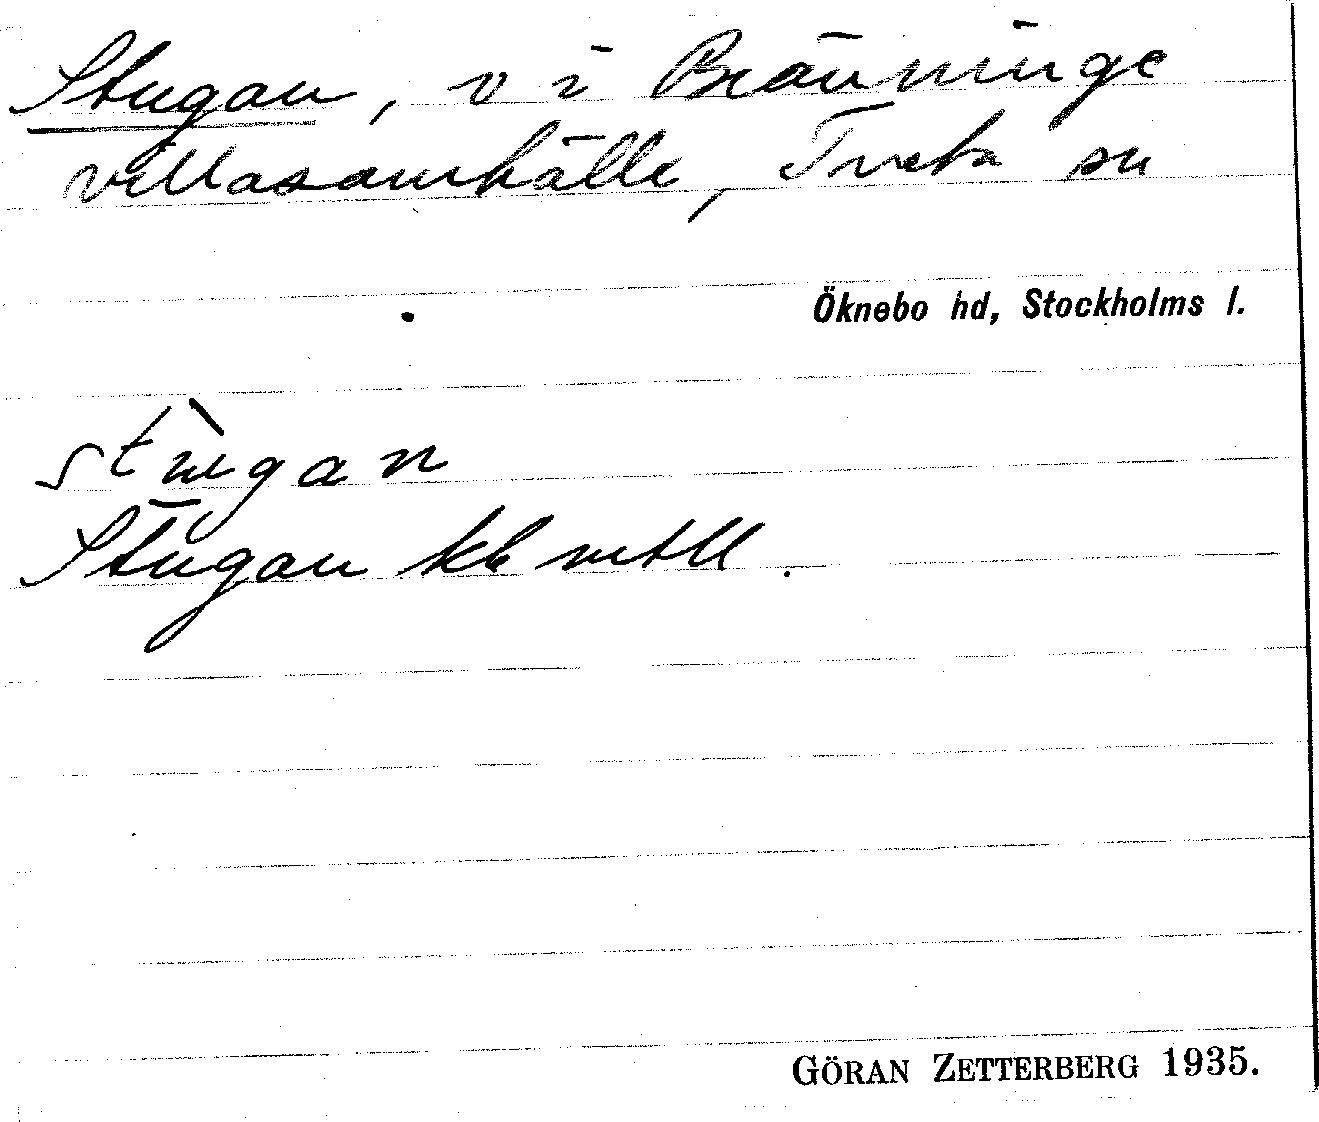 Stugan, v i Bränninge
villasamhälle, Tveta sn
Öknebo hd, Stockholms l.
stùgan
Stugan kb mtll.
GÖRAN ZETTERBERG 1935.